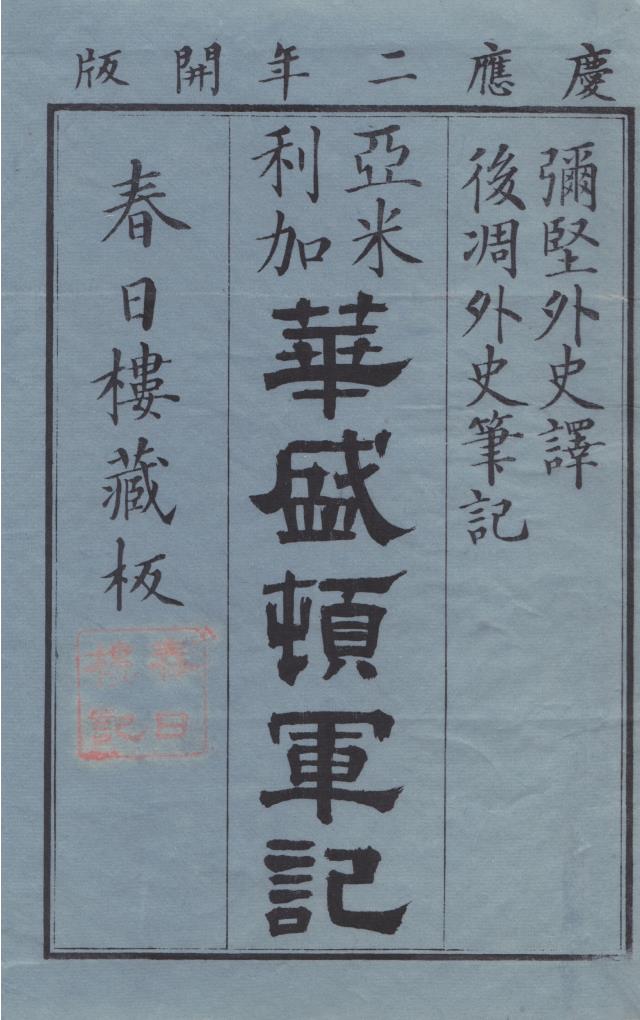 慶應二年開版
彌堅外史譯
後凋外史筆記
亞米
利加
華盛頓軍記
春日樓藏板
春日
樓記